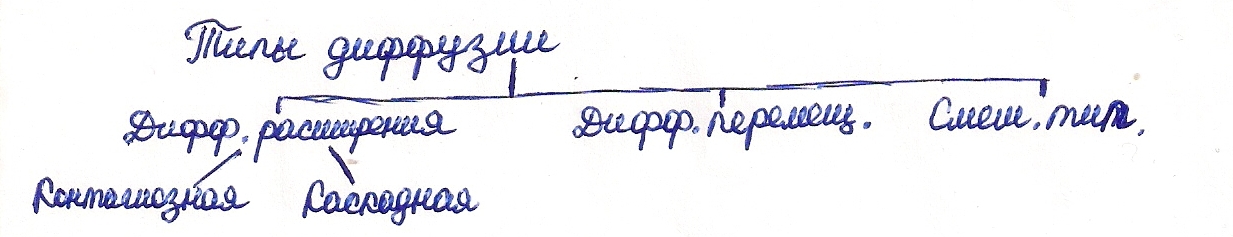 Типы диффузии
Дифф. расширения Дифф. перемещ. Смеш. тип.
Контагиозная Каскадная